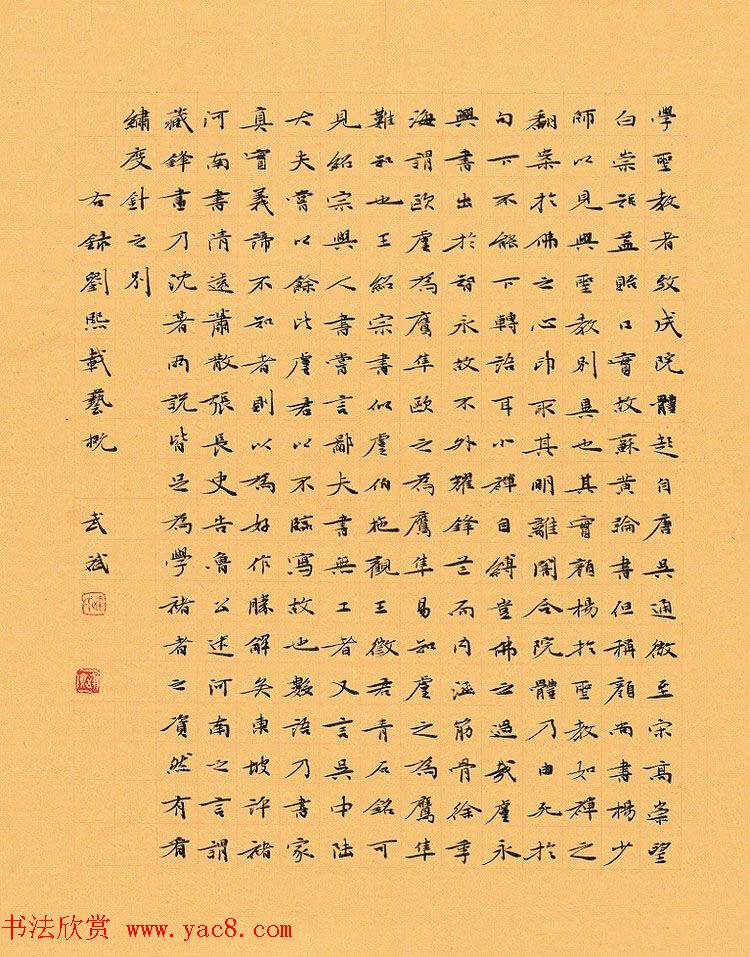 學聖教者致成院體起自唐吳通微至宋高崇望
白崇矩益貽口實故蘇黃論書但稱顏尚書楊少
師以見與聖教別異也其實顏楊於聖教如禪之
翻案於佛之心印取其明離闇合院體乃由死於
句下不能下轉語耳小禪自縛豈佛之過哉虞永
興書出於智永故不外耀鋒芒而內涵筋骨徐季
海謂歐虞為鷹隼歐之為鷹隼易知虞之為鷹隼
難知也王紹宗書似虞伯施觀王徵君青石銘可
見紹宗與人書嘗言鄙夫書無工者又言吳中陸
大夫嘗以餘比虞君以不臨寫故也數語乃書家
真實義諦不知者則以為好作勝解矣東坡評褚
河南書清遠蕭散張長史告魯公述河南之言謂
藏鋒畫乃沈著兩說皆足為學褚者之資然有看
繡度針之別
右錄劉熙載藝概 武斌
书法欣赏 www.yac8.com